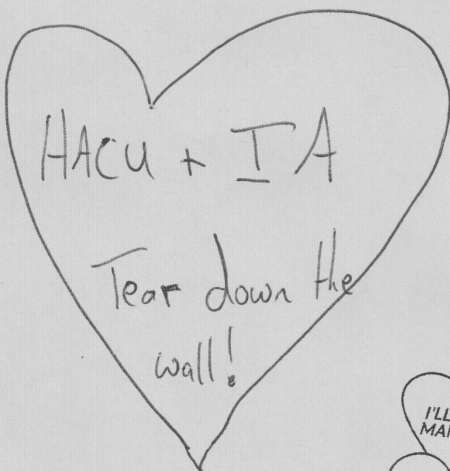 HACU + IA
Tear down the
wall!
I'LL